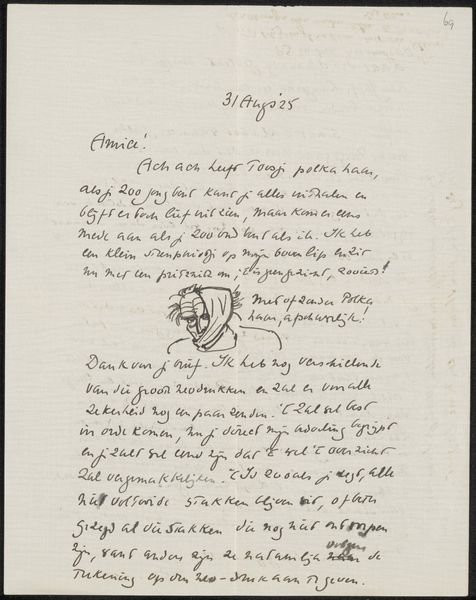 69
31 Aug '25
Amice!
Ach ach heeft Toosji polka haar,
als je zoo jong bent kan je alles uithalen en
blijft er toch lief uitzien, maar kom er eens
mede aan als je zoo oud bent als ik. Ik heb
een klein steenpuistje op mijn bovenlip en zit
nu met een
met of zonder Polka
haar, afschuwelijk!
Dank voor je brief. Ik heb nog verschillende
van die groote neodrukken en zal er voor alle
zekerheid nog een paar zenden. 't Zal wel best
in orde komen, nu je direct mijn bedoeling begrijpt
en je zult wel eens zijn dat 't wel 't overzicht
zal vergemakkelijken. 't Is zooals je zegt, alle
niet voltooide stukken blijven uit, of beter
gezegd al die stukken die nog niet ontworpen
zijn, want anders zijn ze natuurlijk volgens de
teekening op den neo-druk aan te geven.